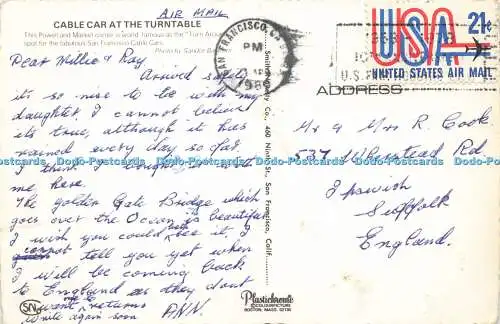 AIR MAIL
CABLE CAR AT THE TURNTABLE
This Powell and Market corner is world famous as the "Turn Around"
spot for the fabulous San Francisco Cable Cars.
Photo by Sandor Ba
Dear Millie & Ray
Arrived safely
it's so nice to be with my
daughter, I cannot believe
it's true, although it has
rained every day so far.
I think I brought it with
me here.
The golden Gate Bridge which
goes over the Ocean is beautiful
I wish you could see it, I
cannot tell you yet when
I will be coming back
to England as they dont
want me to return
Write again soon ANN.
SN
Smith Novelty Co., 460 Ninth St., San Francisco, Calif.
Plastichrome
COLOURPICTURE
BOSTON, MASS. 02130
SAN FRANCISCO, CA
PM
198
USA 21c
UNITED STATES AIR MAIL
ADDRESS
Mr & Mrs R. Cook
537 Rd
Ipswich
Suffolk
England.
Dodo-Postcards Dodo-Postcards Dodo-Postcards Dodo-Postcards